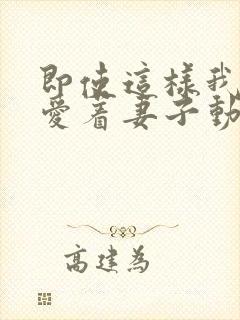 即使這樣我
愛着妻子動
高建為